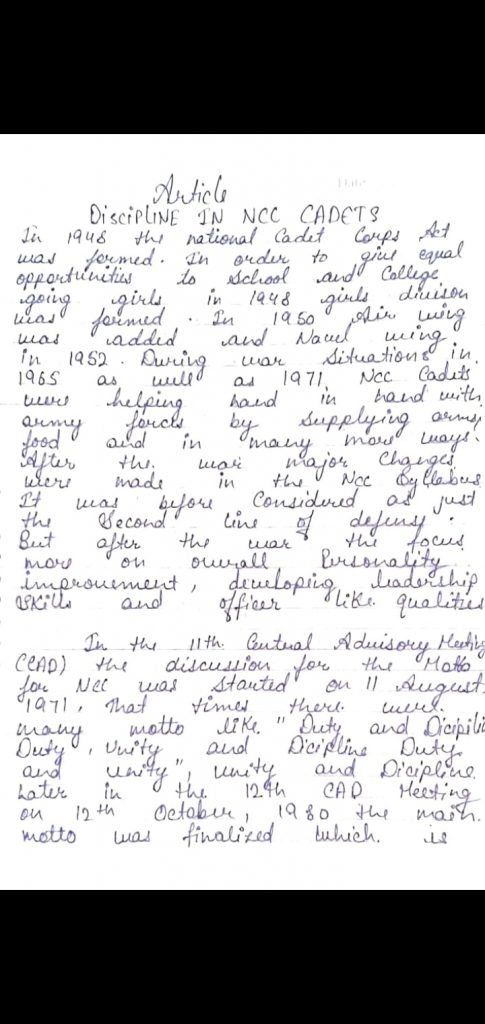 Article
DISCIPLINE IN NCC CADETS
In 1948 the national Cadet Corps Act
was formed. In order to give equal
opportunities to School and College
going girls in 1948 girls divison
was formed. In 1950 Air wing
was added and Naval wing
in 1952. During war Situations in
1965 as well as 1971, NCC Cadets
were helping hand in hand with
army forces by supplying arms,
food and in many more ways.
After the war major Changes
were made in the NCC Syllabus
It was before Considered as just
the Second line of defense.
But after the war the focus
more on overall Personality
improvement, developing leadership
skills and officer like qualities

In the 11th Central Advisory Meeting
(CAD) the discussion for the Motto
for NCC was started on 11 August
1971, That times there were
many motto like "Duty and Dicipli
Duty, Unity and Dicipline Duty
and unity", unity and Dicipline.
Later in the 12th CAD Meeting
on 12th October, 1980 the main
motto was finalized which is